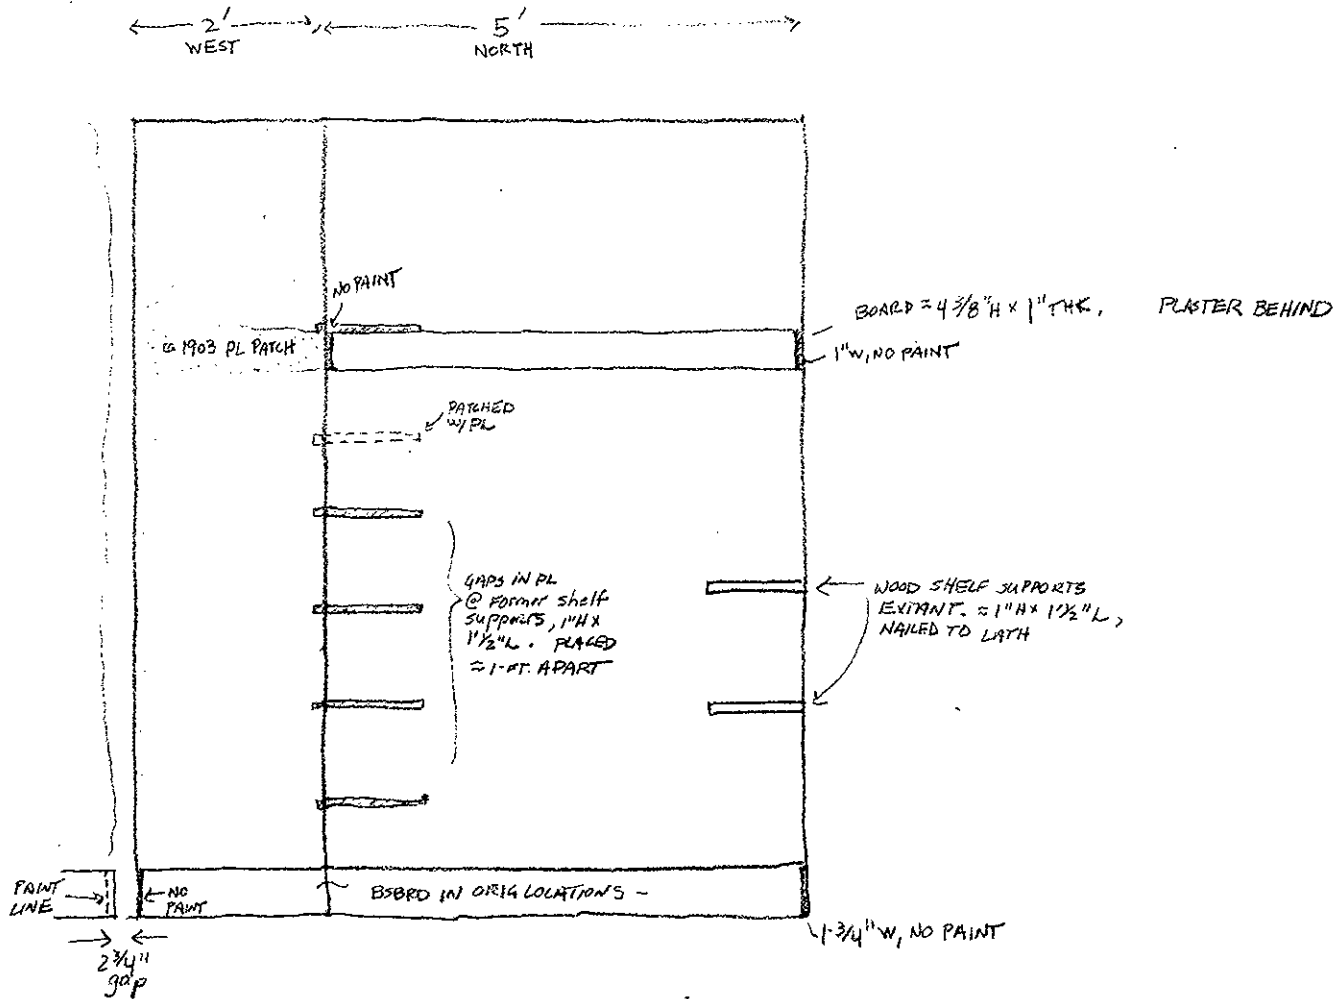 2'
WEST
5'
NORTH
NO PAINT
1903 PL PATCH
BOARD ≈ 4 3/8"H × 1" THK. PLASTER BEHIND
1"W, NO PAINT
PATCHED
W/PL
GAPS IN PL
@ Former shelf
supports, 1"H ×
1'½"L. PLACED
≈ 1-FT. APART
WOOD SHELF SUPPORTS
EXTANT. ≈ 1"H × 1'½"L,
NAILED TO LATH
PAINT
LINE
NO
PAINT
BSBRD IN ORIG LOCATIONS -
1-3/4"W, NO PAINT
2¾"
gap